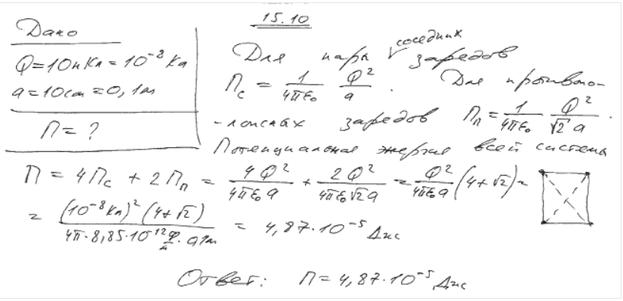 15.10
Дано
Q=10нКл=10⁻⁸Кл
a=10см=0,1м
П=?
Для пары соседних зарядов
Пс = 1/(4πε₀) Q²/a . Для противопо-
-ложных зарядов Пп = 1/(4πε₀) Q²/(√2 a) .
Потенциальная энергия всей системы
П = 4Пс + 2Пп = 4Q²/(4πε₀a) + 2Q²/(4πε₀√2a) = Q²/(4πε₀a) (4+√2) =
= (10⁻⁸Кл)²(4+√2)/(4π·8,85·10⁻¹² Ф/м · 0,1м) = 4,87·10⁻⁵ Дж
Ответ: П=4,87·10⁻⁵ Дж